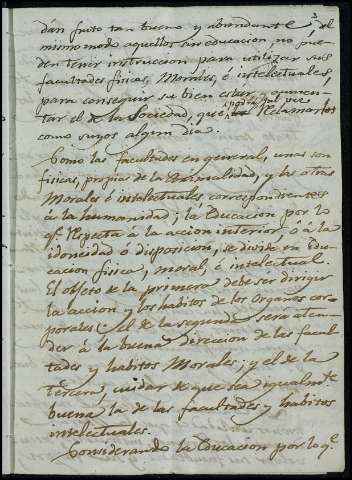 3
dán fruto tan bueno y abundante; del
mismo modo aquellos sin educacion, no pue-
den tener instruccion para utilizar sus
facultades fisicas, Morales, é intelectuales,
para conseguir su bien estar, aumen-
tar el de la Sociedad, que Reclamarlos
como suyos algun dia.
Como las facultades en general, unas son
fisicas, propias de la Animalidad, y las otras
Morales é intelectuales correspondientes
á la humanidad; la Educacion por lo
qe. Respecta á la accion interior ó á la
idoneidad ó disposicion, se divide en edu-
cacion fisica, moral, é intelectual.
El objeto de la primera debe ser dirigir
la accion y los habitos de los Organos cor-
porales: el de la segunda será aten-
der á la buena direccion de las facul-
tades y habitos Morales; y el de la
tercera, cuidar de que sea igualmte.
buena la de las facultades y habitos
intelectuales.
Considerando la Educacion por lo qe.